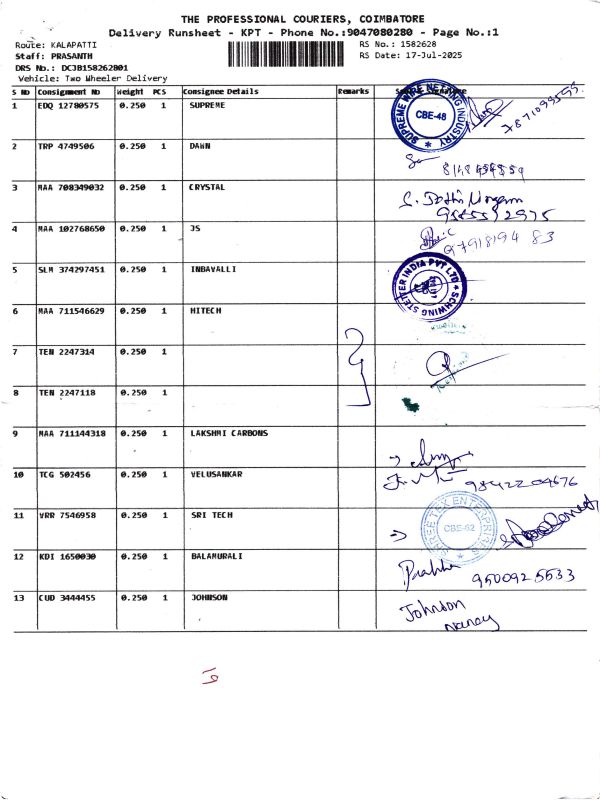 THE PROFESSIONAL COURIERS, COIMBATORE
Delivery Runsheet - KPT - Phone No.:9047080280 - Page No.:1
Route: KALAPATTI
RS No.: 1582628
Staff: PRASANTH
RS Date: 17-Jul-2025
DRS No.: DC3B158262801
Vehicle: Two Wheeler Delivery
S No Consignment No Weight PCS Consignee Details Remarks
1 EDQ 12780575 0.250 1 SUPREME
CBE-48
2 TRP 4749506 0.250 1 DAWN
3 MAA 708349032 0.250 1 CRYSTAL
4 MAA 102768650 0.250 1 JS
9791819483
5 SLM 374297451 0.250 1 INBAVALLI
SCHWING STETTER INDIA PVT LTD
6 MAA 711546629 0.250 1 HITECH
7 TEN 2247314 0.250 1
8 TEN 2247118 0.250 1
9 MAA 711144318 0.250 1 LAKSHMI CARBONS
10 TCG 502456 0.250 1 VELUSANKAR
9842204676
11 VRR 7546958 0.250 1 SRI TECH
ENTERPRISES
CBE-62
12 KDI 1650030 0.250 1 BALAMURALI
Prabhu
9500925533
13 CUD 3444455 0.250 1 JOHNSON
Johnson